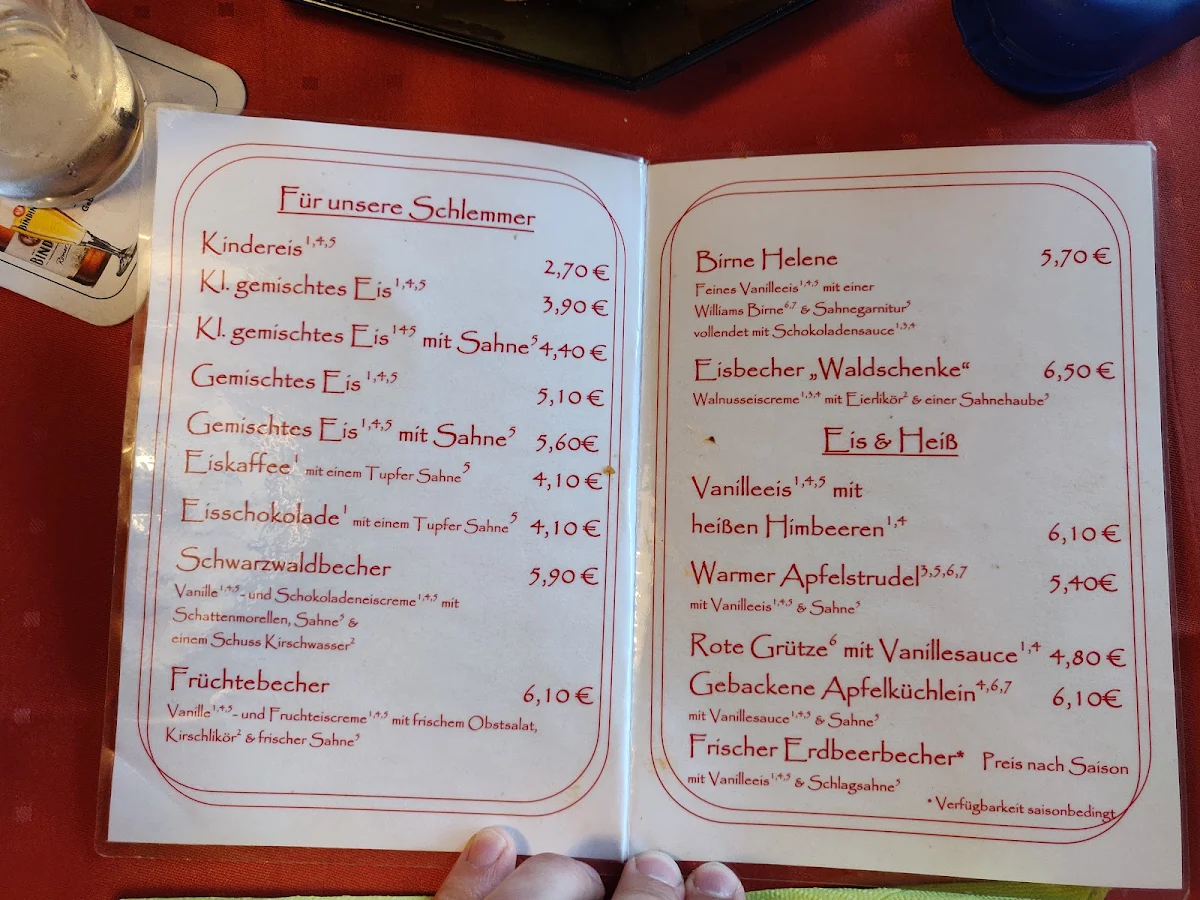 Für unsere Schlemmer
Kindereis1,4,5 2,70 €
Kl. gemischtes Eis1,4,5 3,90 €
Kl. gemischtes Eis145 mit Sahne5 4,40 €
Gemischtes Eis1,4,5 5,10 €
Gemischtes Eis1,4,5 mit Sahne5 5,60€
Eiskaffee1 mit einem Tupfer Sahne5 4,10 €
Eisschokolade1 mit einem Tupfer Sahne5 4,10 €
Schwarzwaldbecher 5,90 €
Vanille1,4,5- und Schokoladeneiscreme1,4,5 mit
Schattenmorellen, Sahne5 &
einem Schuss Kirschwasser2
Früchtebecher 6,10 €
Vanille1,4,5- und Fruchteiscreme1,4,5 mit frischem Obstsalat,
Kirschlikör2 & frischer Sahne5
Birne Helene 5,70 €
Feines Vanilleeis1,4,5 mit einer
Williams Birne6,7 & Sahnegarnitur5
vollendet mit Schokoladensauce1,3,4
Eisbecher „Waldschenke“ 6,50 €
Walnusseiscreme1,3,4 mit Eierlikör2 & einer Sahnehaube5
Eis & Heiß
Vanilleeis1,4,5 mit
heißen Himbeeren1,4 6,10 €
Warmer Apfelstrudel3,5,6,7 5,40€
mit Vanilleeis1,4,5 & Sahne5
Rote Grütze6 mit Vanillesauce1,4 4,80 €
Gebackene Apfelküchlein4,6,7 6,10€
mit Vanillesauce1,4,5 & Sahne5
Frischer Erdbeerbecher* Preis nach Saison
mit Vanilleeis1,4,5 & Schlagsahne5
* Verfügbarkeit saisonbedingt